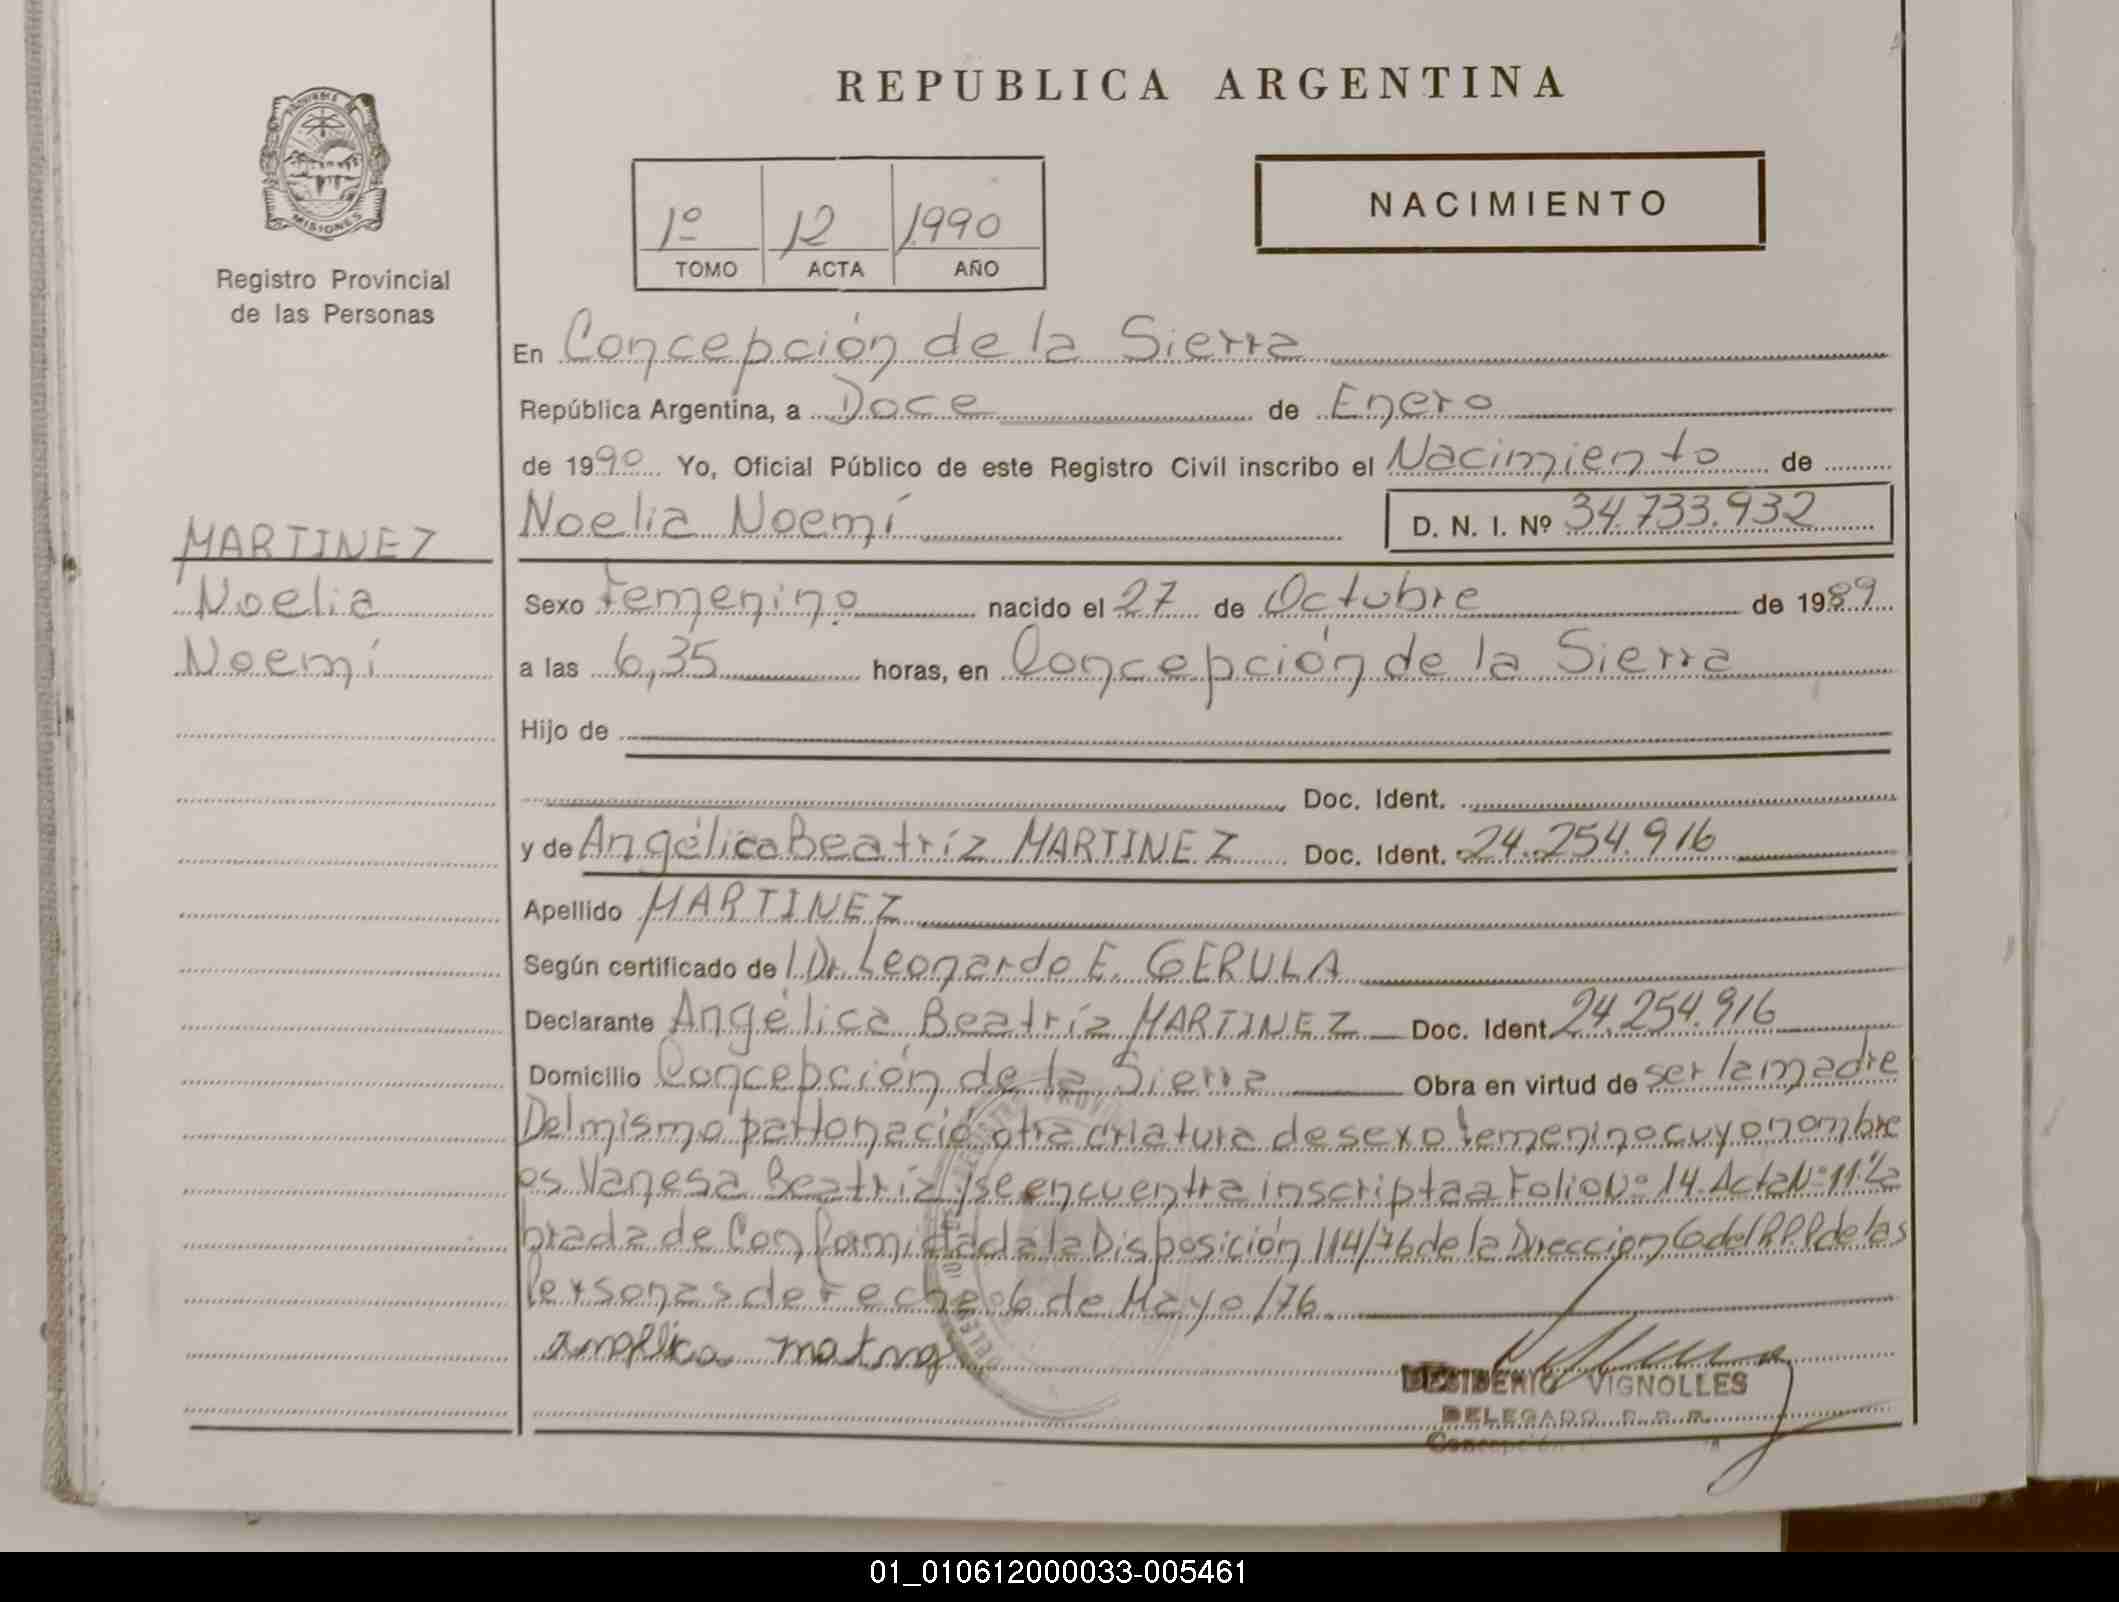 REPUBLICA ARGENTINA
PROVINCIA DE
MISIONES
Registro Provincial
de las Personas
1º 12 1990
TOMO ACTA AÑO
NACIMIENTO
En Concepción de la Sierra
República Argentina, a Doce de Enero
de 1990 Yo, Oficial Público de este Registro Civil inscribo el Nacimiento de
Noelia Noemí D. N. I. Nº 34.733.932
MARTINEZ
Noelia
Noemí
Sexo Femenino nacido el 27 de Octubre de 1989
a las 6,35 horas, en Concepción de la Sierra
Hijo de
Doc. Ident.
y de Angélica Beatríz MARTINEZ Doc. Ident. 24.254.916
Apellido MARTINEZ
Según certificado de Dr. Leonardo E. GERULA
Declarante Angélica Beatríz MARTINEZ Doc. Ident. 24.254.916
Domicilio Concepción de la Sierra Obra en virtud de ser la madre
Del mismo parto nació otra criatura de sexo femenino cuyo nombre
es Vanesa Beatríz y se encuentra inscripta a Folio Nº 14. Acta Nº 11. La
brada de Conformidad a la Disposición 114/76 de la Direccion G. del R.P.P. de las
Personas de fecha 06 de Mayo/76
DESIDERIO VIGNOLLES
DELEGADO R.P.P.
Concepción
01_010612000033-005461